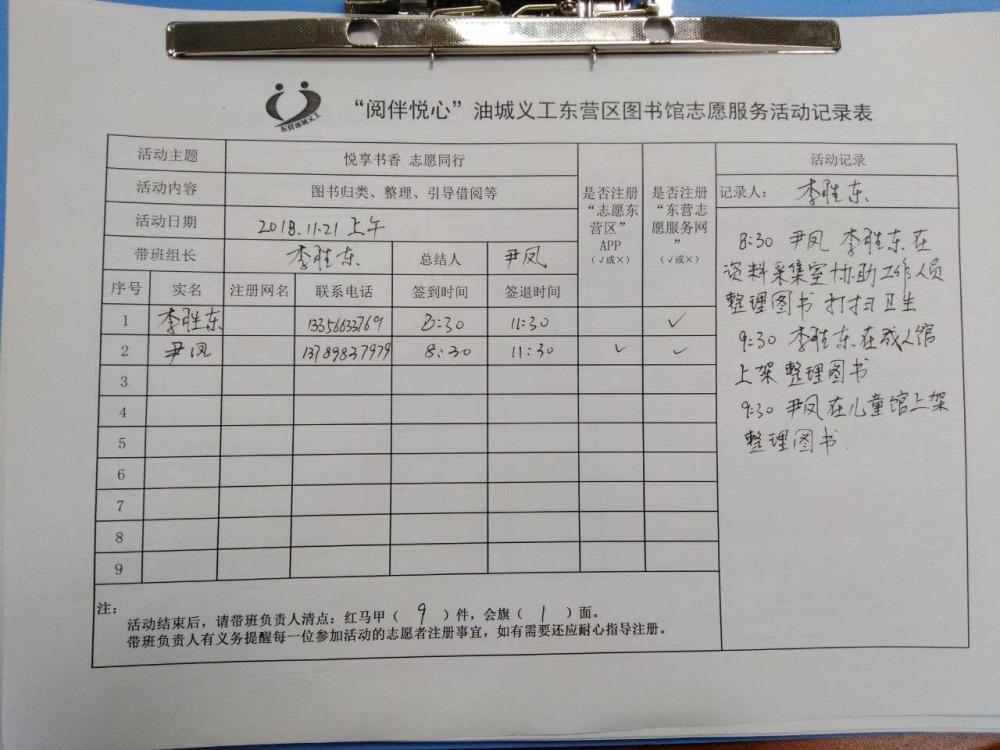 东营油城义工
“阅伴悦心”油城义工东营区图书馆志愿服务活动记录表
活动主题 悦享书香 志愿同行
活动内容 图书归类、整理、引导借阅等
活动日期 2018.11.21 上午
带班组长 李胜东 总结人 尹凤
是否注册
“志愿东
营区”
APP
(√或×)
是否注册
“东营志
愿服务网
”
(√或×)
序号 实名 注册网名 联系电话 签到时间 签退时间
1 李胜东 13356632769 8:30 11:30 √
2 尹凤 13789837979 8:30 11:30 √ √
3
4
5
6
7
8
9
活动记录
记录人: 李胜东
8:30 尹凤 李胜东在
资料采集室协助工作人员
整理图书 打扫卫生
9:30 李胜东在成人馆
上架 整理图书
9:30 尹凤在儿童馆上架
整理图书.
注:
活动结束后，请带班负责人清点: 红马甲（ 9 ）件，会旗（ 1 ）面。
带班负责人有义务提醒每一位参加活动的志愿者注册事宜，如有需要还应耐心指导注册。